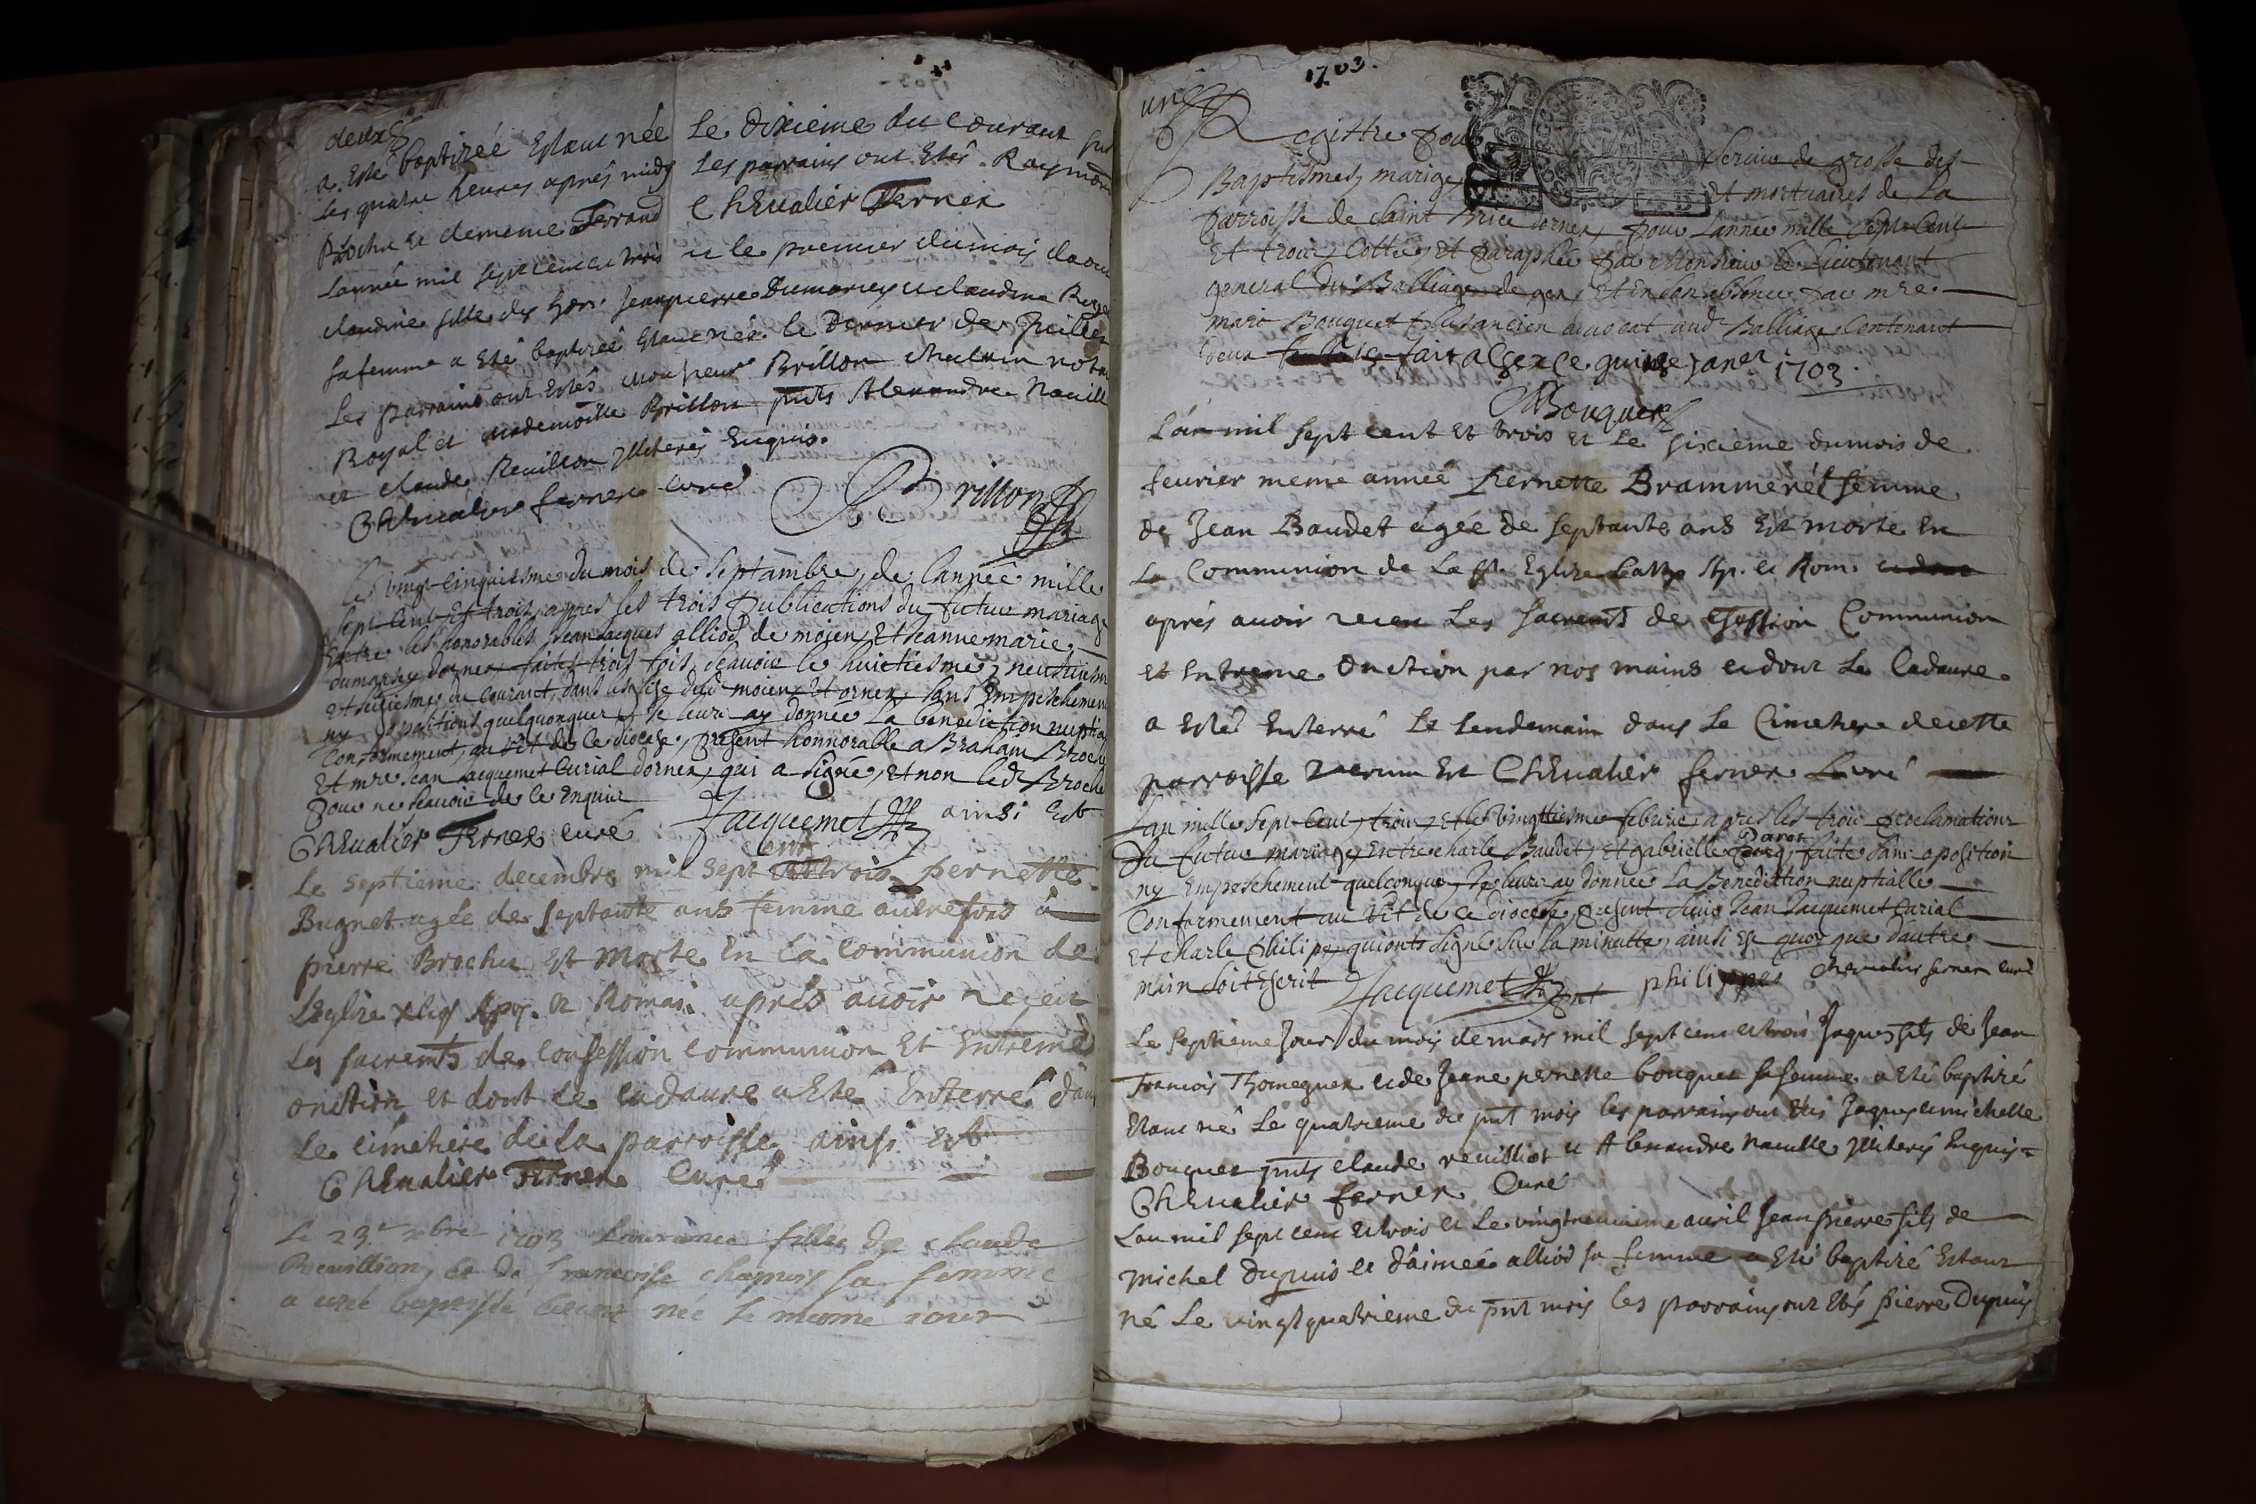 deux
a Esté baptizée Estant née Le dixieme du courant sur
Les quatre heures aprés midy Les parrains ont Estés Raymond
Brochu et demême Ferrand Chevalier Ferner
Lannée mil sept cent et trois et le premier du mois daout
claudine fille des hon. Jeanpierre Dumarey et claudine Roge
sa femme a Eté baptizée Estant née le Dernier de Juillet
Les parrains ont Estés monsieur Brillon notre
Royal et mademoiselle Brillon pnts Alexandre Naville
et claude Revillon Illiterés Enquis.
Chevalier ferner curé Brillon
Le vingt cinquiesme du mois de Septambre, de lannée mille
Sept Cent Et trois, apres les trois publications du futur mariage
Entre les honorables Jean Jacques alliod de moiën, Et Jeanne marie
dumarey dornex, faites trois fois, scavoir le huictiesme, neufviesme
Et seiziesme du courant, dans leglise dud moiën, Et ornex, sans Empeschement
ny opositions quelquonques, Je leurs ay donnée La benediction nuptia
Conformement, au Rit de ce diocese, present honnorable aBraham Broch
Et mre Jean Jacquemet Curial dornex, qui a signé, et non led Broch
pour ne scavoir de ce Enquis
Chevalier Ferner curé Jacquemet ainsi Est
cent
Le septieme decembre mil sept et trois pernette
Bugnet agée de septante ans femme autrefois à
pierre Brochu Est Morte En la communion de
Leglize Apos. et Romai. aprés avoir reçeu
Les sacremts de confession communion Et Entrême
onction et dont le cadavre a Eté Enterré dans
Le cimetiere de la parroisse ainsi Est
Chevalier Ferner Curé
Le 23.e xbre 1703 Laurance fillie de claude
Revillion, et de francoise chapuis sa femme
a esté baptisée étant née le meme jour
1703.
un
Registre pour servir de grosse des
Baptismes, mariages Et mortuaires de La
parroisse de Saint Brice dornex, pour Lannée mille Sept Cent
Et trois, Cottée, et paraphée par Monsieur le Lieutenant
general du Balliage de gex, Et En son absence par mre
marc Bouquet plus ancien advocat aud Balliage Contenant
deux fait a Gex ce quinze janer 1703.
Bouquet
L'an mil sept cent Et trois et Le sixieme du mois de
fevrier meme année Pernette Brammerel femme
de Jean Baudet âgée de septante ans Est morte En
La Communion de La Ste. Eglize Cath. Ap. et Rom.
aprés avoir receu Les sacremts de Coffession Communion
et Entreme Onction par nos mains et dont Le Cadavre
a Esté Enterré Le Lendemain dans Le Cimetiere de cette
parroisse verum Est Chevalier ferner Curé
Lan mille Sept Cent, trois, Et le Vingttiesme febvrier, apres les trois proclamations
du futur mariage, Entre charle Baudet, Et gabrielle Darot, faite sans oposition
ny Empeschement quelconque, Je leurs ay donnée La Benediction nuptialle
Conformement au Rit de ce diocese, present Jean Jacquemet Curial
Et charle philipe, qui ont signé sur la minutte, ainsi Est quoy que dautre
main soit Escrit Jacquemet pnt philippes Chevalier ferner curé
Le Septieme Jour du mois de mars mil sept cent et trois Jaques fils de Jean
francois Thomeguex et de Jeane pernette bouquet sa femme a Eté baptizé
Etant né Le quatrieme du pnt mois les parrains ont Etés Jaques et michelle
Bouquet pnts claude revillion et Alexandre Naville Illiterés Enquis
Chevalier ferner Curé
Lan mil sept cent et trois et Le vingtneuvieme avril Jeanpierre fils de
michel Dupuis et d'aimée alliod sa femme a Eté baptizé Estant
né Le vingtquatrieme du pnt mois les parrains ont Etés pierre Dupuis